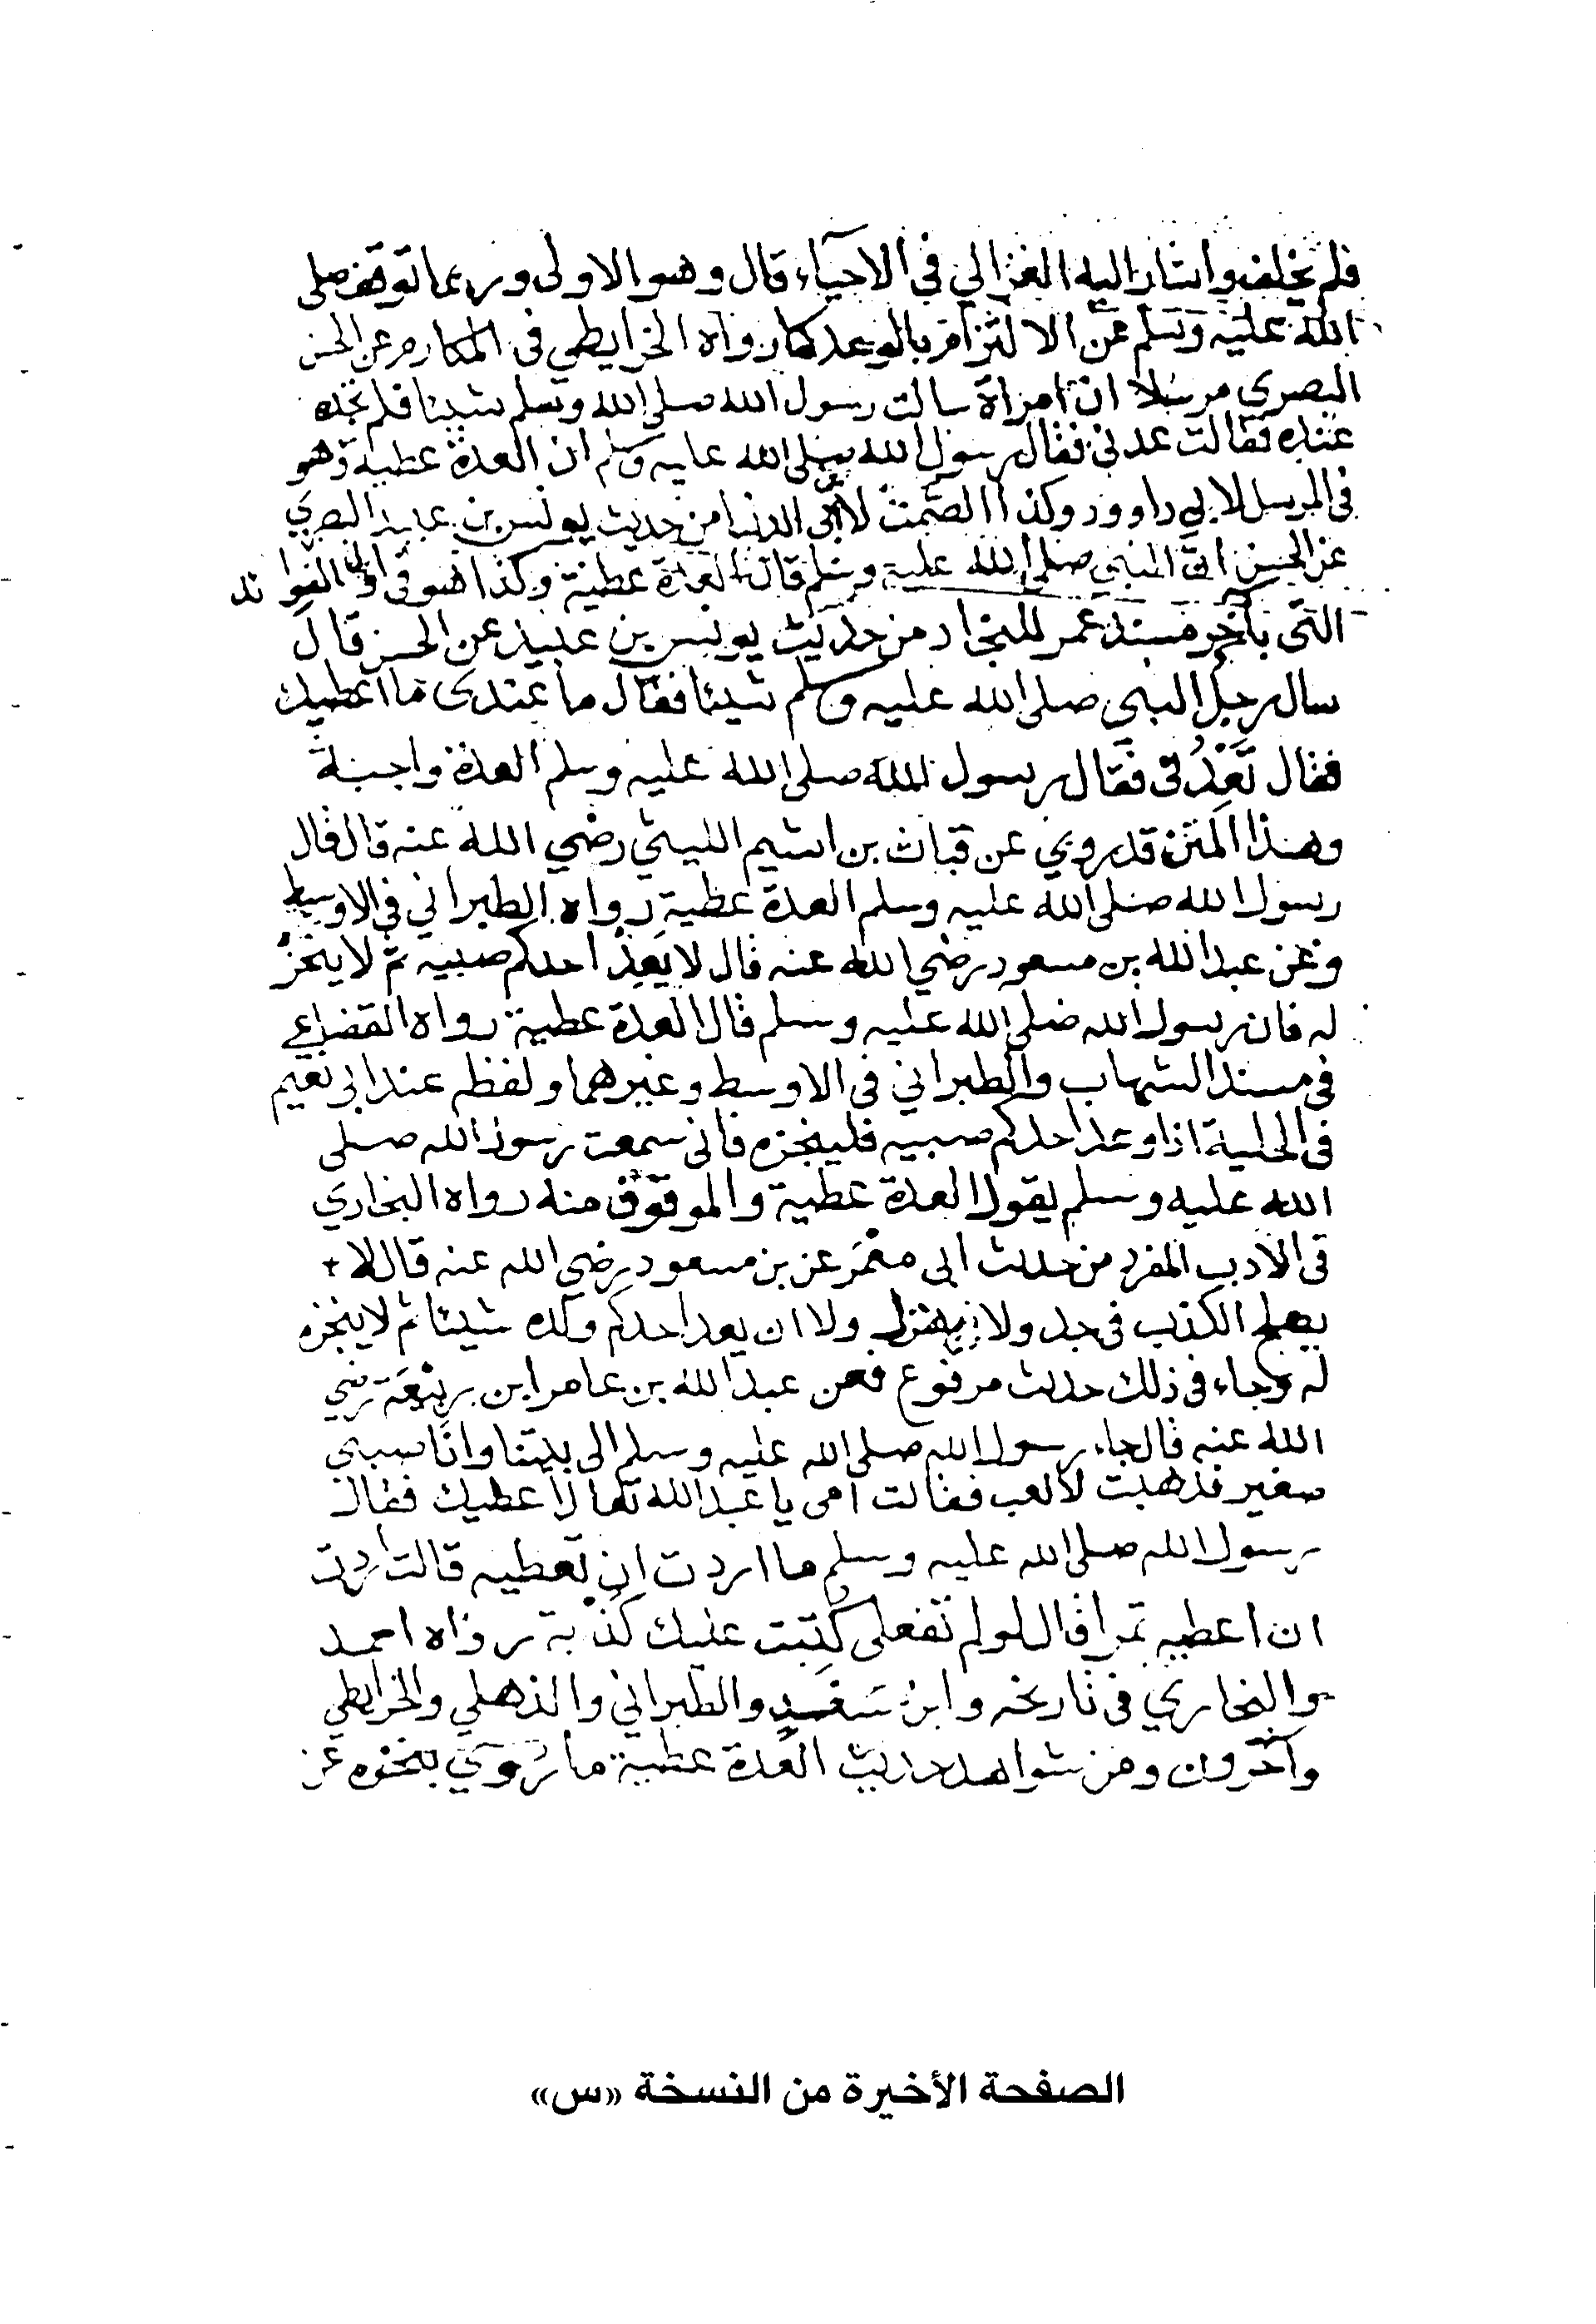 فلم يخلف واشار اليه الغزالي في الاحياء قال وهو الاولى وربما توقف صلى
الله عليه وسلم عن الالتزام بالوعد كما رواه الخرايطي في المكارم عن الحسن
البصري مرسلا ان امراة سالت رسول الله صلى الله وسلم شيئا فلم تجده
عنده فقالت عدني فقال رسول الله صلى الله عليه وسلم ان العدة عطية وهو
في المرسل لابي داوود وكذا الصمت لابي الدنيا من حديث يونس بن عبيد البصري
عن الحسن ان النبي صلى الله عليه وسلم قال العدة عطية وكذا هو في الفوائد
التي باخر مسند عمر للنجاد من حديث يونس بن عبيد عن الحسن قال
سال رجل النبي صلى الله عليه وسلم شيئا فقال ما عندى ما اعطيك
فقال تَعِدُني فقال رسول الله صلى الله عليه وسلم العدة واجبة
وهذا المتن قد روي عن قباث بن اشيم الليثي رضي الله عنه قال قال
رسول الله صلى الله عليه وسلم العدة عطية رواه الطبراني في الاوسط
وعن عبد الله بن مسعود رضي الله عنه قال لا يَعِدْ احدكم صبيه ثم لا ينجزْ
له فان رسول الله صلى الله عليه وسلم قال العدة عطية رواه القضاعي
في مسند الشهاب والطبراني في الاوسط وغيرهما ولفظه عند ابي نعيم
في الحلية اذا وعد احدكم صبيه فلينجزه فاني سمعت رسول الله صلى
الله عليه وسلم يقول العدة عطية والموقوف منه رواه البخاري
في الادب المفرد من حديث ابي معْمَر عن بن مسعود رضي الله عنه قال لا
يصلح الكذب في جد ولا هزل ولا ان يعد احدكم ولده شيئا ثم لا ينجزه
له وجاء في ذلك حديث مرفوع فعن عبد الله بن عامر ابن ربيعة رضي
الله عنه قال جاء رسول الله صلى الله عليه وسلم الى بيتنا وانا صبي
صغير فذهبت لالعب فقالت امي يا عبد الله تعال اعطيك فقال
رسول الله صلى الله عليه وسلم ما اردت ان تعطيه قالت اردت
ان اعطيه تمرا قال لو لم تفعلي كُتِبت عليك كذْبة رواه احمد
والبخاري في تاريخه وابن سَعْد والطبراني والذهلي والخرايطي
وآخرون ومن شواهد حديث العدة عطية ما رُوي بنحوه عن
الصفحة الأخيرة من النسخة «س»